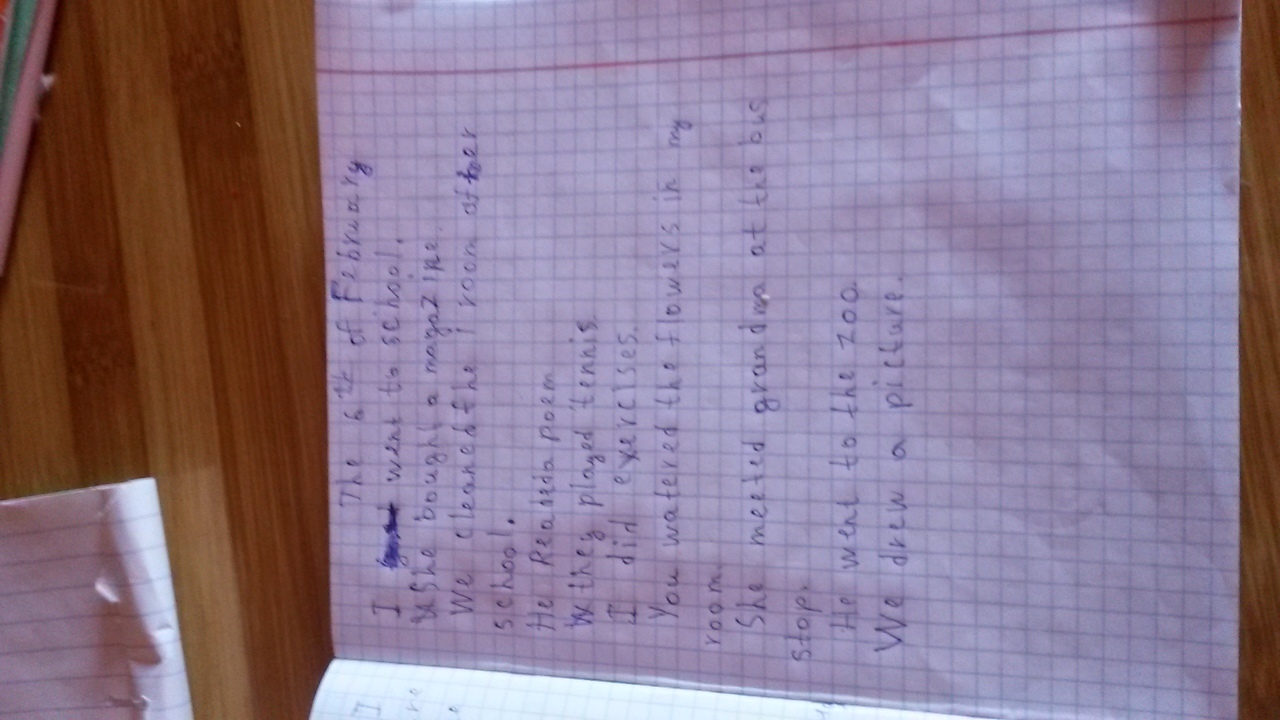 The 6th of February
I went to school.
She bought a magazine.
We cleaned the room after
school.
He Readed a poem
they played tennis.
I did exercises.
You watered the flowers in my
room.
She meeted grandma at the bus
stop.
He went to the zoo.
We drew a picture.